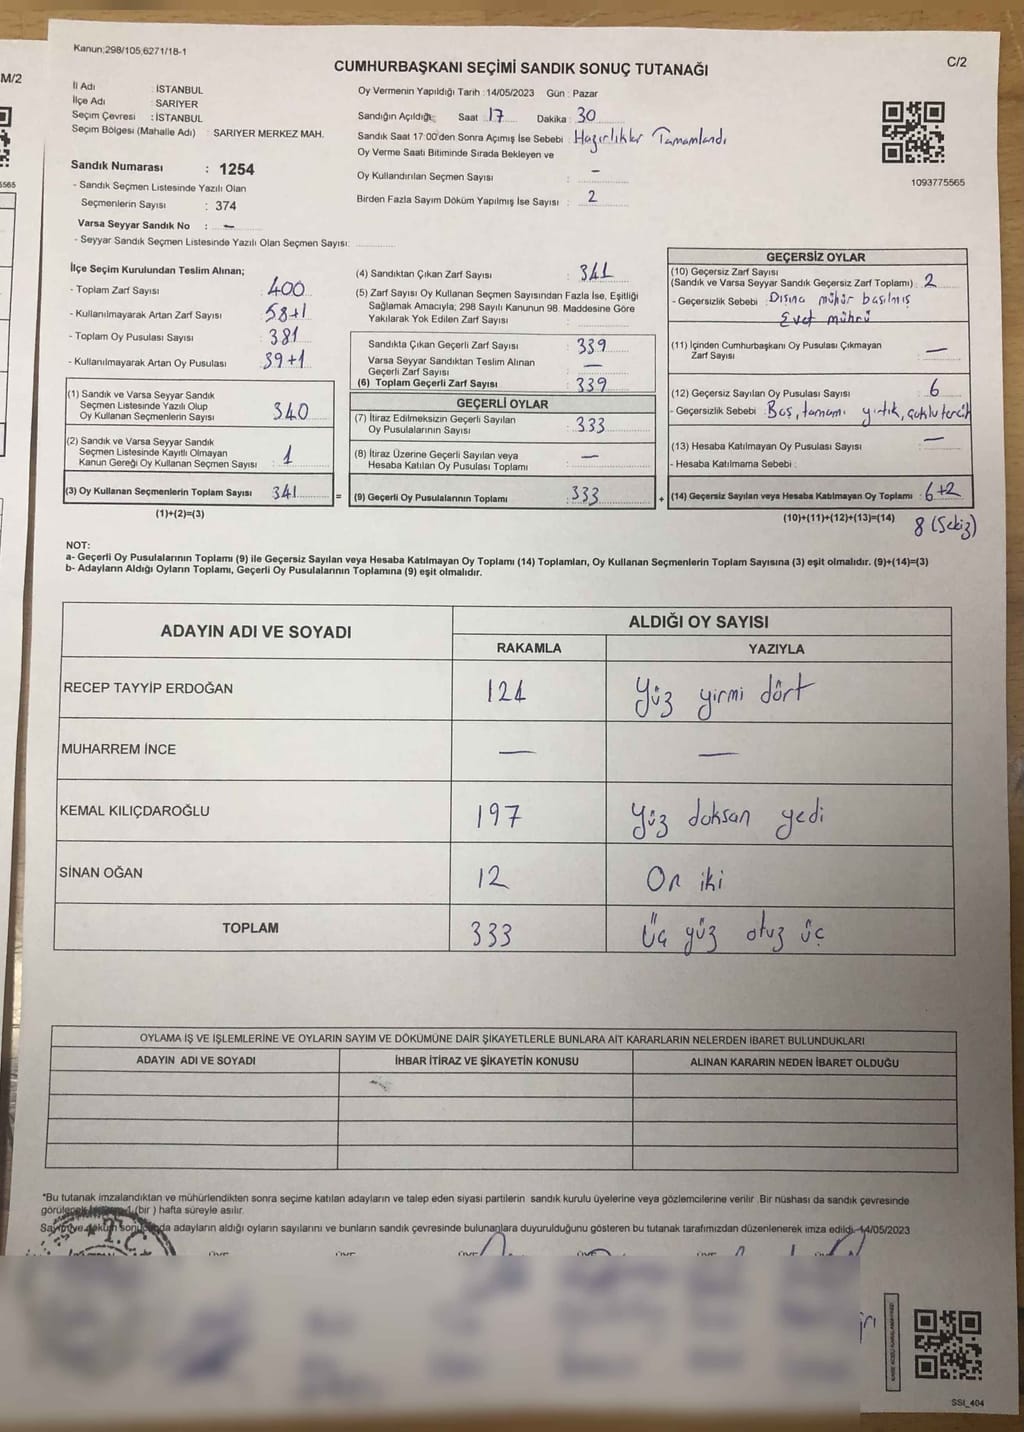 M/2
5565
Kanun;298/105,6271/18-1
CUMHURBAŞKANI SEÇİMİ SANDIK SONUÇ TUTANAĞI
C/2
İl Adı : İSTANBUL
İlçe Adı : SARIYER
Seçim Çevresi : İSTANBUL
Seçim Bölgesi (Mahalle Adı) : SARIYER MERKEZ MAH.
Oy Vermenin Yapıldığı Tarih : 14/05/2023 Gün : Pazar
Sandığın Açıldığı; Saat 17 Dakika : 30
Sandık Saat 17:00'den Sonra Açımış İse Sebebi : Hazırlıklar Tamamlandı
Oy Verme Saati Bitiminde Sırada Bekleyen ve
Oy Kullandırılan Seçmen Sayısı : –
Birden Fazla Sayım Döküm Yapılmış İse Sayısı : 2
1093775565
Sandık Numarası : 1254
- Sandık Seçmen Listesinde Yazılı Olan
Seçmenlerin Sayısı : 374
Varsa Seyyar Sandık No : –
- Seyyar Sandık Seçmen Listesinde Yazılı Olan Seçmen Sayısı:
İlçe Seçim Kurulundan Teslim Alınan;
- Toplam Zarf Sayısı : 400
- Kullanılmayarak Artan Zarf Sayısı : 58+1
- Toplam Oy Pusulası Sayısı : 381
- Kullanılmayarak Artan Oy Pusulası : 39+1
(1) Sandık ve Varsa Seyyar Sandık
Seçmen Listesinde Yazılı Olup
Oy Kullanan Seçmenlerin Sayısı : 340
(2) Sandık ve Varsa Seyyar Sandık
Seçmen Listesinde Kayıtlı Olmayan
Kanun Gereği Oy Kullanan Seçmen Sayısı : 1
(3) Oy Kullanan Seçmenlerin Toplam Sayısı : 341
(1)+(2)=(3)
(4) Sandıktan Çıkan Zarf Sayısı : 341
(5) Zarf Sayısı Oy Kullanan Seçmen Sayısından Fazla İse, Eşitliği
Sağlamak Amacıyla; 298 Sayılı Kanunun 98. Maddesine Göre
Yakılarak Yok Edilen Zarf Sayısı :
Sandıkta Çıkan Geçerli Zarf Sayısı : 339
Varsa Seyyar Sandıktan Teslim Alınan
Geçerli Zarf Sayısı : –
(6) Toplam Geçerli Zarf Sayısı : 339
GEÇERLİ OYLAR
(7) İtiraz Edilmeksizin Geçerli Sayılan
Oy Pusulalarının Sayısı : 333
(8) İtiraz Üzerine Geçerli Sayılan veya
Hesaba Katılan Oy Pusulası Toplamı : –
= (9) Geçerli Oy Pusulalarının Toplamı : 333
GEÇERSİZ OYLAR
(10) Geçersiz Zarf Sayısı
(Sandık ve Varsa Seyyar Sandık Geçersiz Zarf Toplamı) : 2
- Geçersizlik Sebebi : Dışına mühür basılmış
Evet mührü
(11) İçinden Cumhurbaşkanı Oy Pusulası Çıkmayan
Zarf Sayısı : –
(12) Geçersiz Sayılan Oy Pusulası Sayısı : 6
- Geçersizlik Sebebi : Boş, tamamı yırtık, çoklu tercih
(13) Hesaba Katılmayan Oy Pusulası Sayısı : –
- Hesaba Katılmama Sebebi :
+ (14) Geçersiz Sayılan veya Hesaba Katılmayan Oy Toplamı : 6+2
(10)+(11)+(12)+(13)=(14)
8 (Sekiz)
NOT:
a- Geçerli Oy Pusulalarının Toplamı (9) ile Geçersiz Sayılan veya Hesaba Katılmayan Oy Toplamı (14) Toplamları, Oy Kullanan Seçmenlerin Toplam Sayısına (3) eşit olmalıdır. (9)+(14)=(3)
b- Adayların Aldığı Oyların Toplamı, Geçerli Oy Pusulalarının Toplamına (9) eşit olmalıdır.
ADAYIN ADI VE SOYADI
ALDIĞI OY SAYISI
RAKAMLA YAZIYLA
RECEP TAYYİP ERDOĞAN 124 Yüz yirmi dört
MUHARREM İNCE – –
KEMAL KILIÇDAROĞLU 197 Yüz doksan yedi
SİNAN OĞAN 12 On iki
TOPLAM 333 Üç yüz otuz üç
OYLAMA İŞ VE İŞLEMLERİNE VE OYLARIN SAYIM VE DÖKÜMÜNE DAİR ŞİKAYETLERLE BUNLARA AİT KARARLARIN NELERDEN İBARET BULUNDUKLARI
ADAYIN ADI VE SOYADI İHBAR İTİRAZ VE ŞİKAYETİN KONUSU ALINAN KARARIN NEDEN İBARET OLDUĞU
*Bu tutanak imzalandıktan ve mühürlendikten sonra seçime katılan adayların ve talep eden siyasi partilerin sandık kurulu üyelerine veya gözlemcilerine verilir. Bir nüshası da sandık çevresinde
görülecek 1 (bir) hafta süreyle asılır.
Sayım ve döküm sonucunda adayların aldığı oyların sayılarını ve bunların sandık çevresinde bulunanlara duyurulduğunu gösteren bu tutanak tarafımızdan düzenlenerek imza edildi. 14/05/2023
T.C.
SSI_404